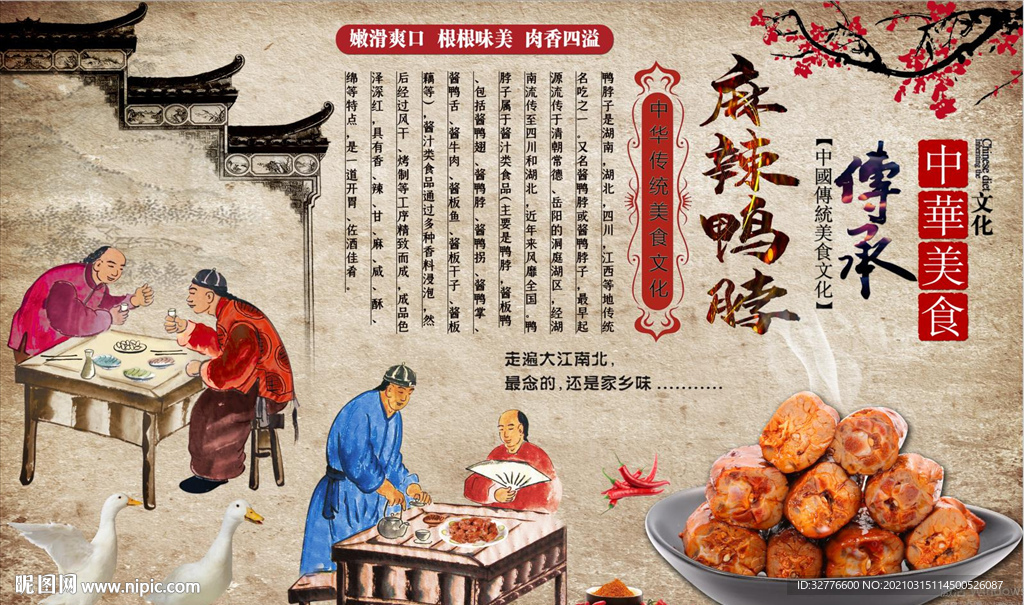 嫩滑爽口 根根味美 肉香四溢
中華美食
文化
Chinese diet
傳承
【中國傳統美食文化】
麻辣鸭脖
中华传统美食文化
鸭脖子是湖南，湖北，四川，江西等地传统
名吃之一．又名酱鸭脖或酱鸭脖子，最早起
源流传于清朝常德、岳阳的洞庭湖区，经湖
南流传至四川和湖北，近年来风靡全国．鸭
脖子属于酱汁类食品（主要是鸭脖，酱板鸭
、包括酱鸭翅、酱鸭脖、酱鸭拐、酱鸭掌、
酱鸭舌、酱牛肉、酱板鱼、酱板干子、酱板
藕等），酱汁类食品通过多种香料浸泡，然
后经过风干、烤制等工序精致而成，成品色
泽深红，具有香、辣、甘、麻、咸、酥、
绵等特点，是一道开胃、佐酒佳肴。
走遍大江南北，
最念的，还是家乡味 …………
昵图网 www.nipic.com
ID:32776600 NO:20210315114500526087